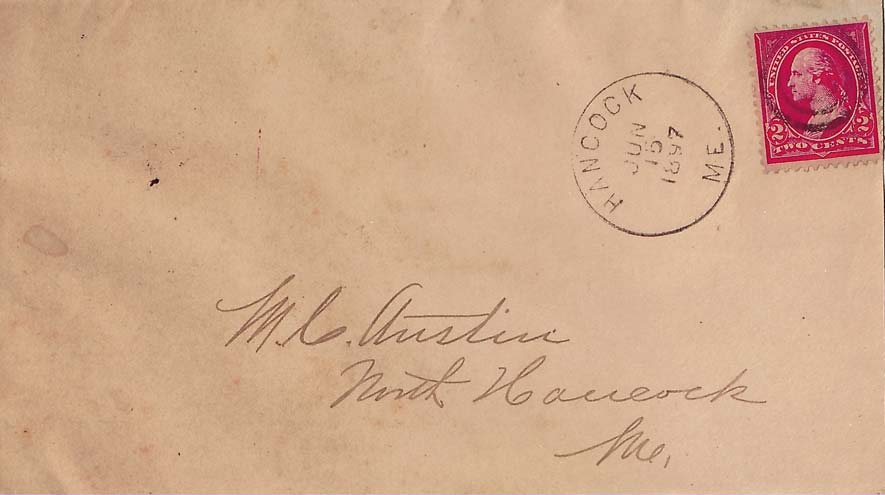 UNITED STATES POSTAGE
2 2
TWO CENTS
HANCOCK
JUN
15
1897
ME.
M. C. Austin
North Hancock
Me.